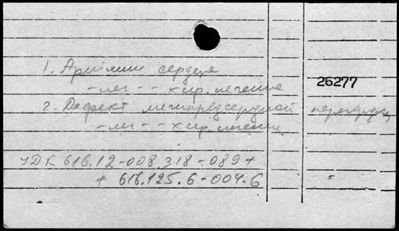 1. Аритмии сердца
-леч- - хир. лечение
26277
2. Дефект межпредсердной перегородки
-леч- - хир. лечение
УДК 616.12-008.318-089+
+ 616.125.6-007-6